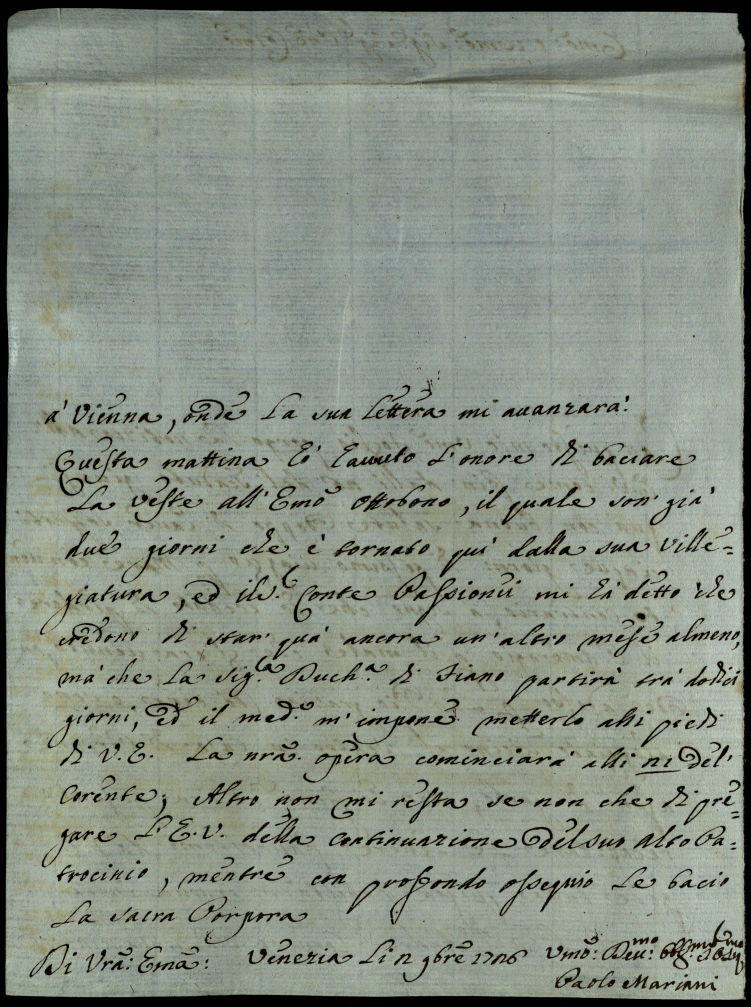 a' Vienna, onde la sua lettera mi auanzara:
Questa mattina hò hauuto l'onore di baciare
la veste all'Emõ Ottobono, il quale son' già
due giorni che è tornato quì dalla sua ville=
giatura, ed il Sr. Conte Passionei mi hà detto che
credono di star' quà ancora un'altro mese almeno,
mà che la Sig.ra Duch.a di Fiano partirà trà dodici
giorni, ed il med.o m'impone metterlo alli piedi
di V.E. La nrã. opera cominciarà alli del'
corente; Altro non mi resta se non che di pre=
gare l'E.V. della continuazione del suo alto Pa=
trocinio, mentre con profondo ossequio le bacio
la sacra Porpora
Di Vrã: Emã: Venezia li 9bre 1726 Umõ: Deu:mo Obl:mo
Paolo Mariani